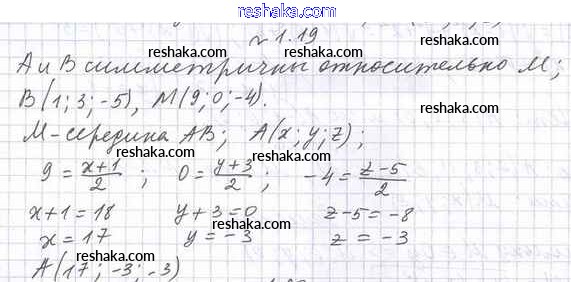 reshaka.com
№ 1.19
reshaka.com reshaka.com reshaka.com
А и В симметричны относительно М;
В(1; 3; -5), М(9; 0; -4).
reshaka.com reshaka.com
М-середина АВ; А(x; y; z);
reshaka.com
9 = x+1/2 ; 0 = y+3/2 ; -4 = z-5/2
reshaka.com reshaka.com
x+1=18 y+3=0 z-5=-8
x=17 y=-3 z=-3
reshaka.com reshaka.com reshaka.com
А(17; -3; -3)
reshaka.com